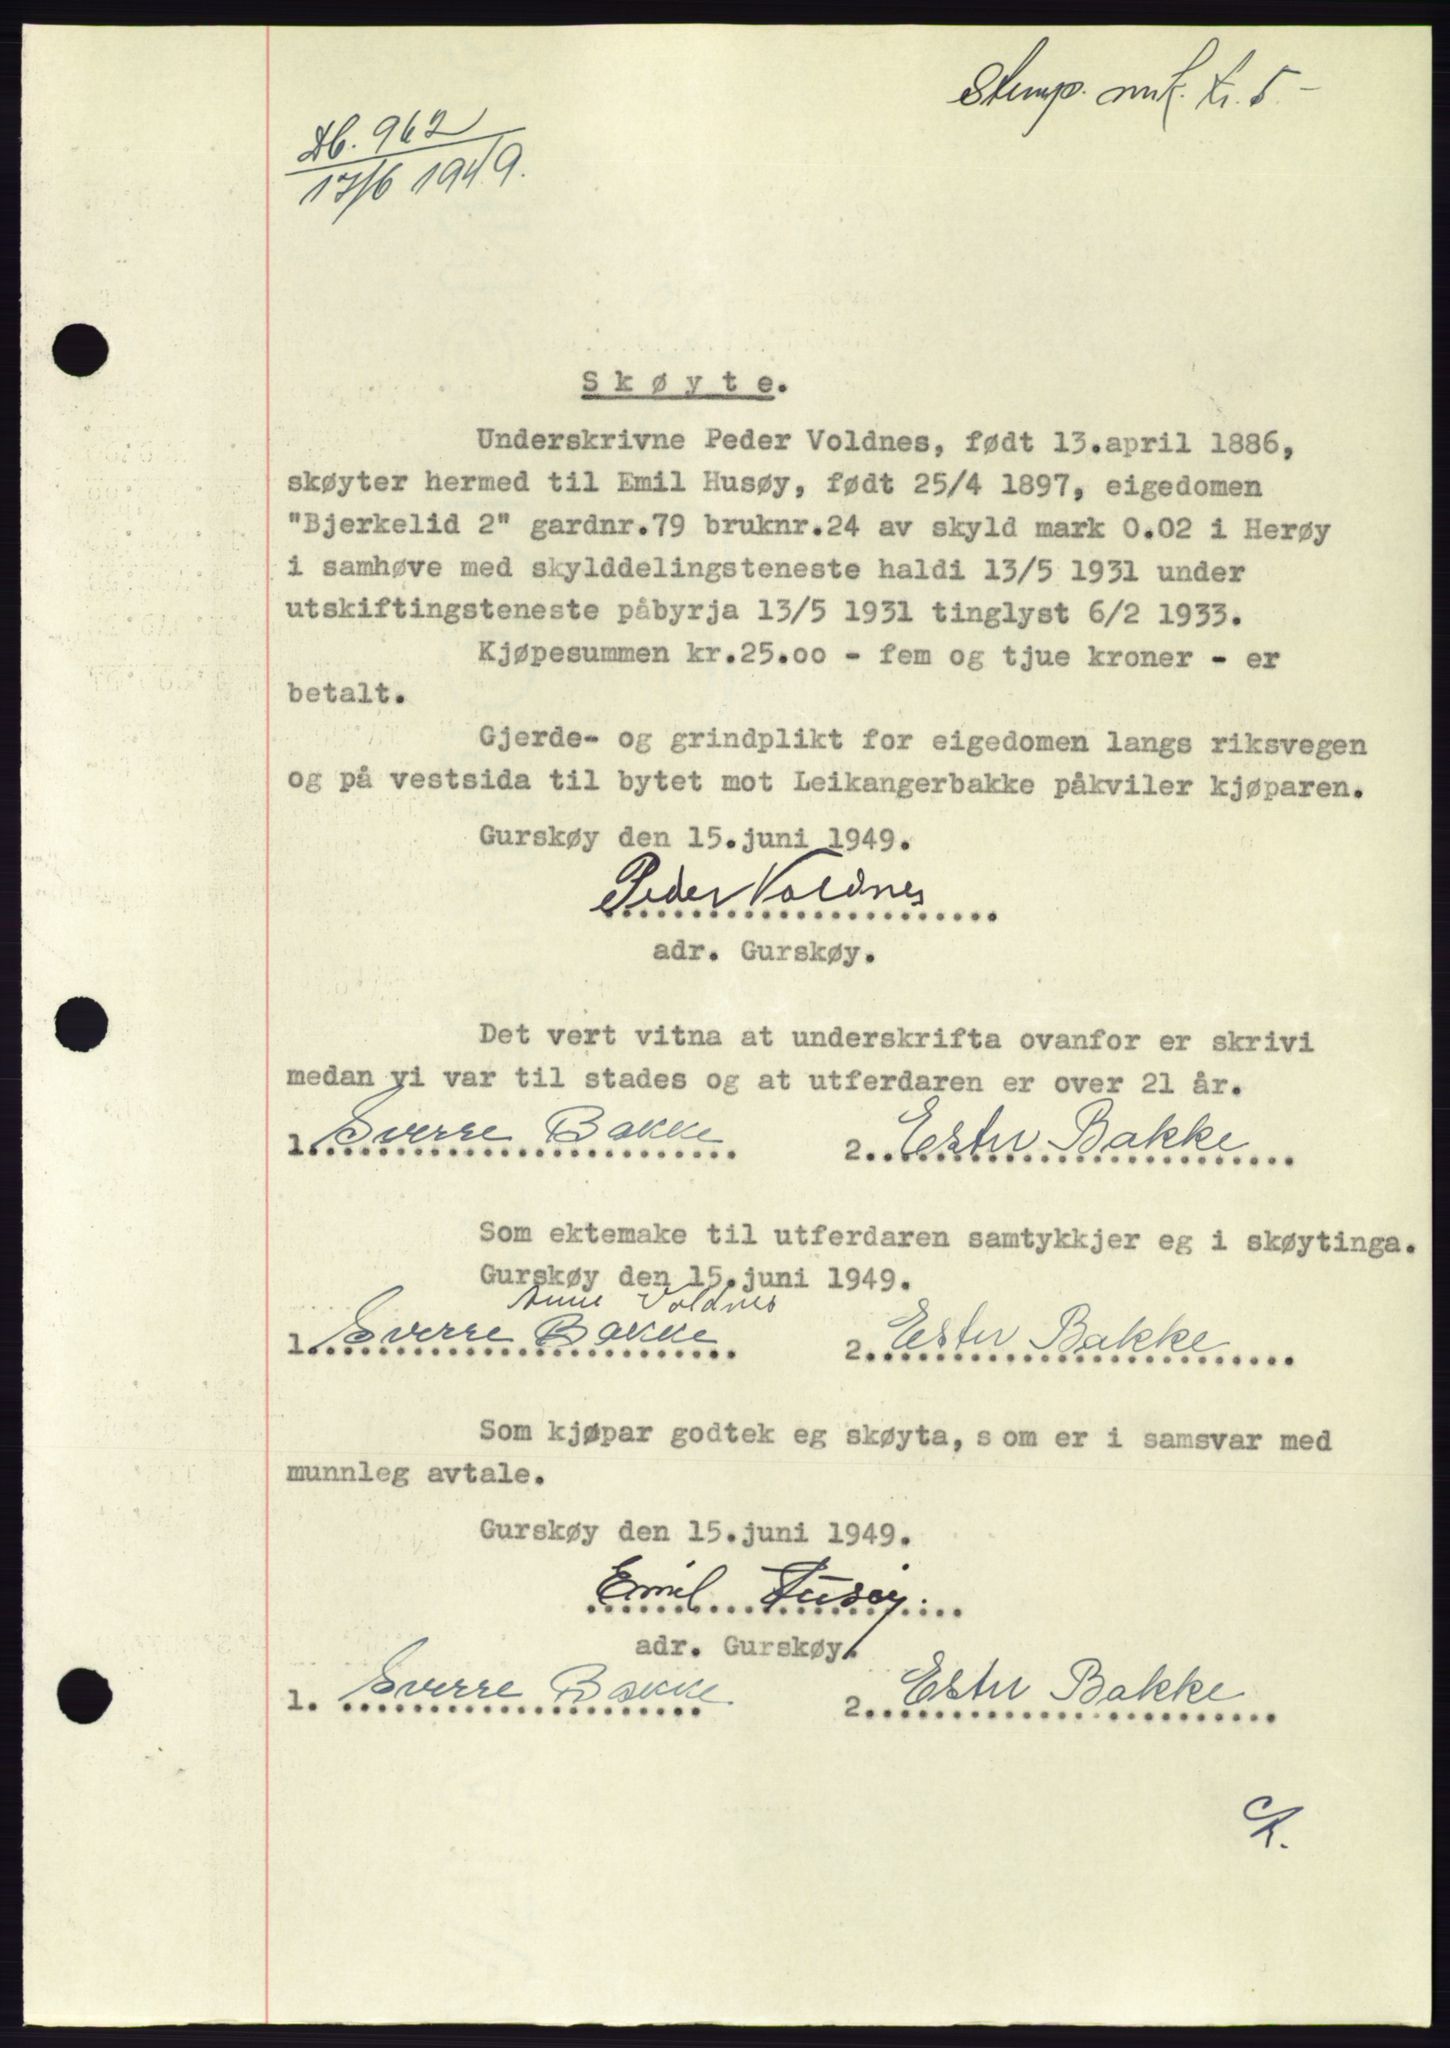 Stemp. mrk. kr. 5.-
Db. 962
17/6 1949.
Skøyte.
Underskrivne Peder Voldnes, født 13.april 1886,
skøyter hermed til Emil Husøy, født 25/4 1897, eigedomen
"Bjerkelid 2" gardnr.79 bruknr.24 av skyld mark 0.02 i Herøy
i samhøve med skylddelingsteneste haldi 13/5 1931 under
utskiftingsteneste påbyrja 13/5 1931 tinglyst 6/2 1933.
Kjøpesummen kr.25.oo - fem og tjue kroner - er
betalt.
Gjerde- og grindplikt for eigedomen langs riksvegen
og på vestsida til bytet mot Leikangerbakke påkviler kjøparen.
Gurskøy den 15.juni 1949.
Peder Voldnes
adr. Gurskøy.
Det vert vitna at underskrifta ovanfor er skrivi
medan vi var til stades og at utferdaren er over 21 år.
1. Sverre Bakke 2. Ester Bakke
Som ektemake til utferdaren samtykkjer eg i skøytinga.
Gurskøy den 15.juni 1949.
Anne Voldnes
1. Sverre Bakke 2. Ester Bakke
Som kjøpar godtek eg skøyta, som er i samsvar med
munnleg avtale.
Gurskøy den 15.juni 1949.
Emil Husøy.
adr. Gurskøy.
1. Sverre Bakke 2. Ester Bakke